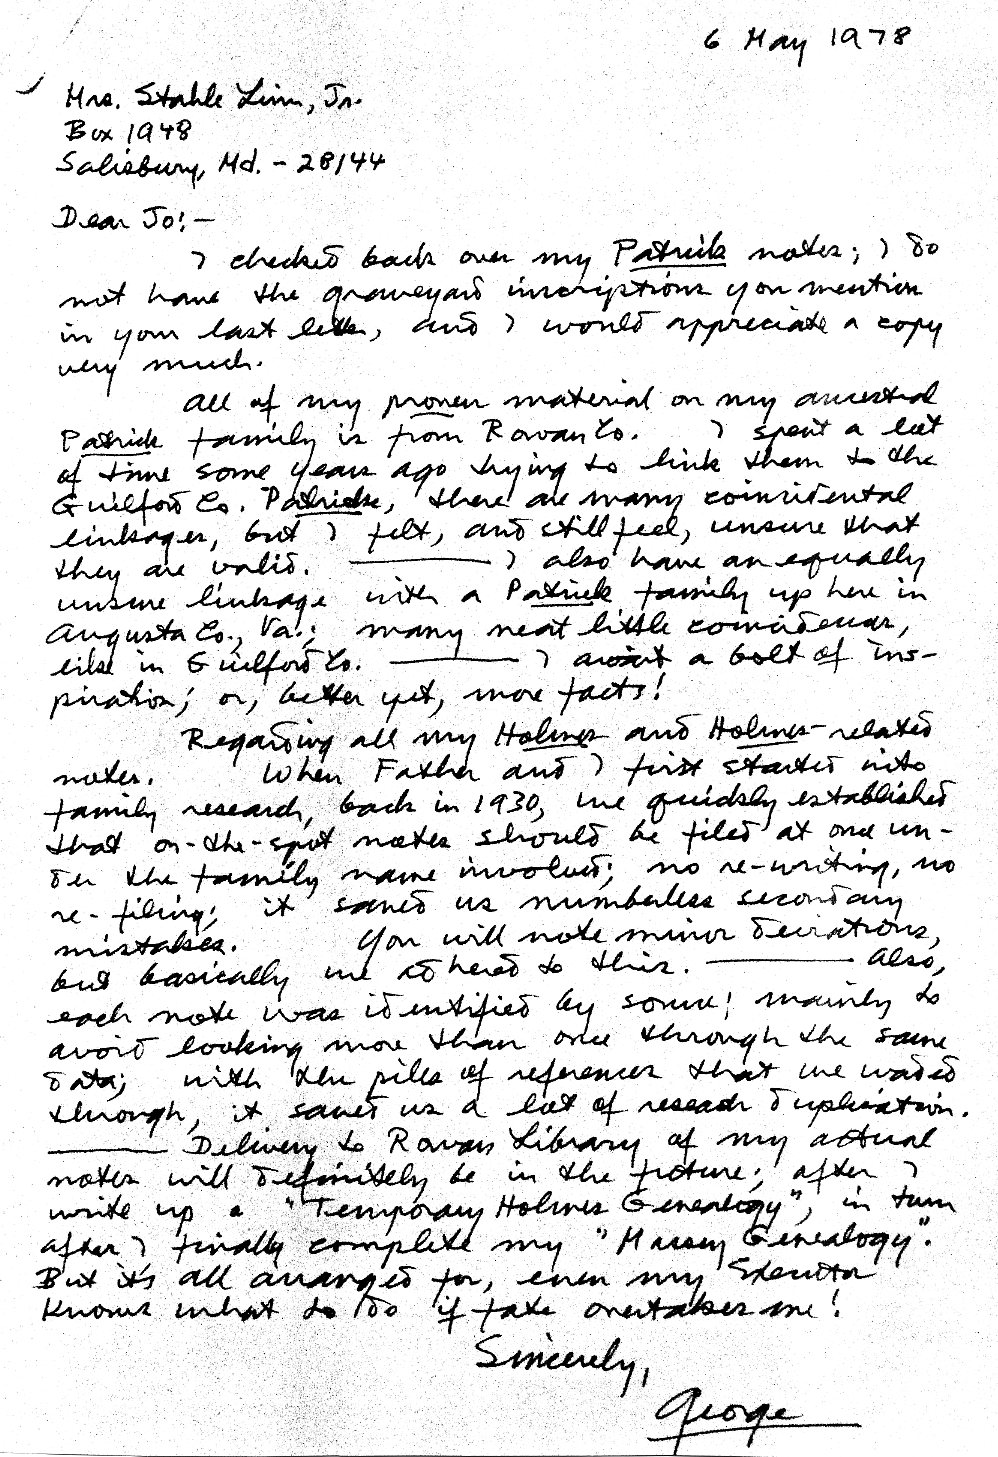 6 May 1978
Mrs. Stahle Linn, Jr.
Box 1948
Salisbury, Md. - 28144
Dear Jo: -
I checked back over my Patrick notes; I do
not have the graveyard inscriptions you mention
in your last letter, and I would appreciate a copy
very much.
All of my proven material on my ancestral
Patrick family is from Rowan Co. I spent a lot
of time some years ago trying to link them to the
Guilford Co. Patricks, there are many coincidental
linkages, but I felt, and still feel, unsure that
they are valid. ——— I also have an equally
unsure linkage with a Patrick family up here in
Augusta Co., Va.; many neat little coincidences,
like in Guilford Co. ——— I await a bolt of ins-
piration; or, better yet, more facts!
Regarding all my Holmes and Holmes-related
notes. When Father and I first started into
family research, back in 1930, we quickly established
that on-the-spot notes should be filed at once un-
der the family name involved; no re-writing, no
re-filing; it saved us numberless secondary
mistakes. You will note minor deviations,
but basically we adhered to this. ——— Also,
each note was identified by source; mainly to
avoid looking more than once through the same
data; with the piles of references that we waded
through, it saved us a lot of reseach duplication.
——— Delivery to Rowan Library of my actual
notes will definitely be in the future; after I
write up a "Temporary Holmes Genealogy", in turn
after I finally complete my "Massey Genealogy".
But it's all arranged for, even my Executor
knows what to do if fate overtakes me!
Sincerely,
George